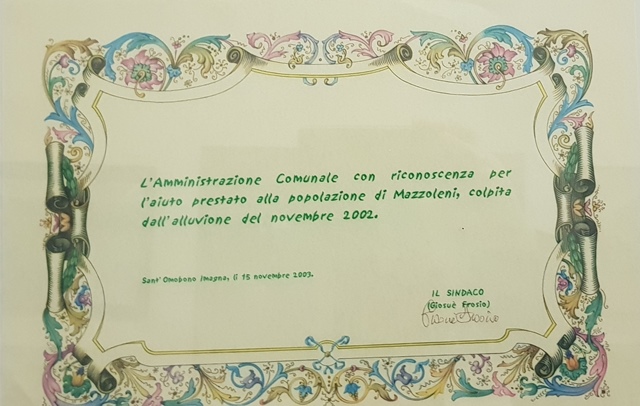 L'Amministrazione Comunale con riconoscenza per
l'aiuto prestato alla popolazione di Mazzoleni, colpita
dall'alluvione del novembre 2002.
Sant' Omobono Imagna, lì 15 novembre 2003.
IL SINDACO
(Giosuè Frosio)